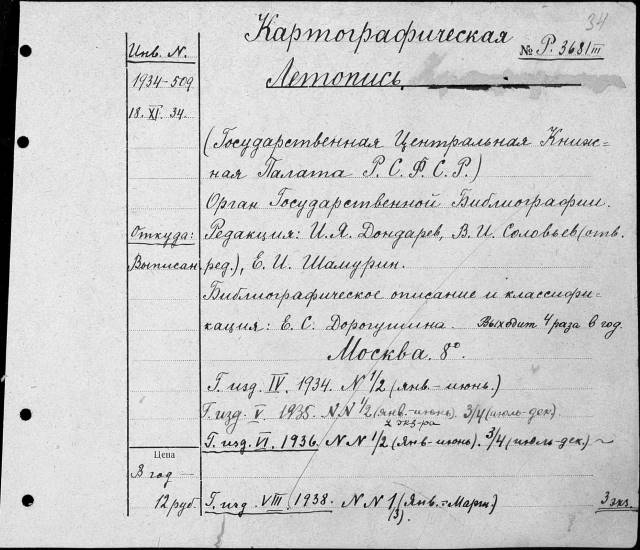 34
Картографическая
Инв. N.
№ Р. 3681 III
1934-509
Летопись.
18. XI. 34.
(Государственная Центральная Книж-
ная Палата Р. С. Ф. С. Р.)
Орган Государственной Библиографии.
Откуда:
Редакция: И. Я. Дондарев, В. И. Соловьев (отв.
Выписан.
ред.), Е. И. Шамурин.
Библиографическое описание и классифи-
кация: Е. С. Дорогушина. Выходит 4 раза в год.
Москва. 8º.
Г. изд. IV. 1934. N 1/2 (янв.-июнь.)
Г. изд. V. 1935. N N 1/2 (янв.-июнь). 3/4 (июль-дек.)
2 экз-ра
Г. изд. VI. 1936. N N 1/2 (янв-июнь). 3/4 (июль-дек.)
Цена
В год —
12 руб.
Г. изд. VIII. 1938. N N 1 (Янв.-Март.)
(3).
3 экз.